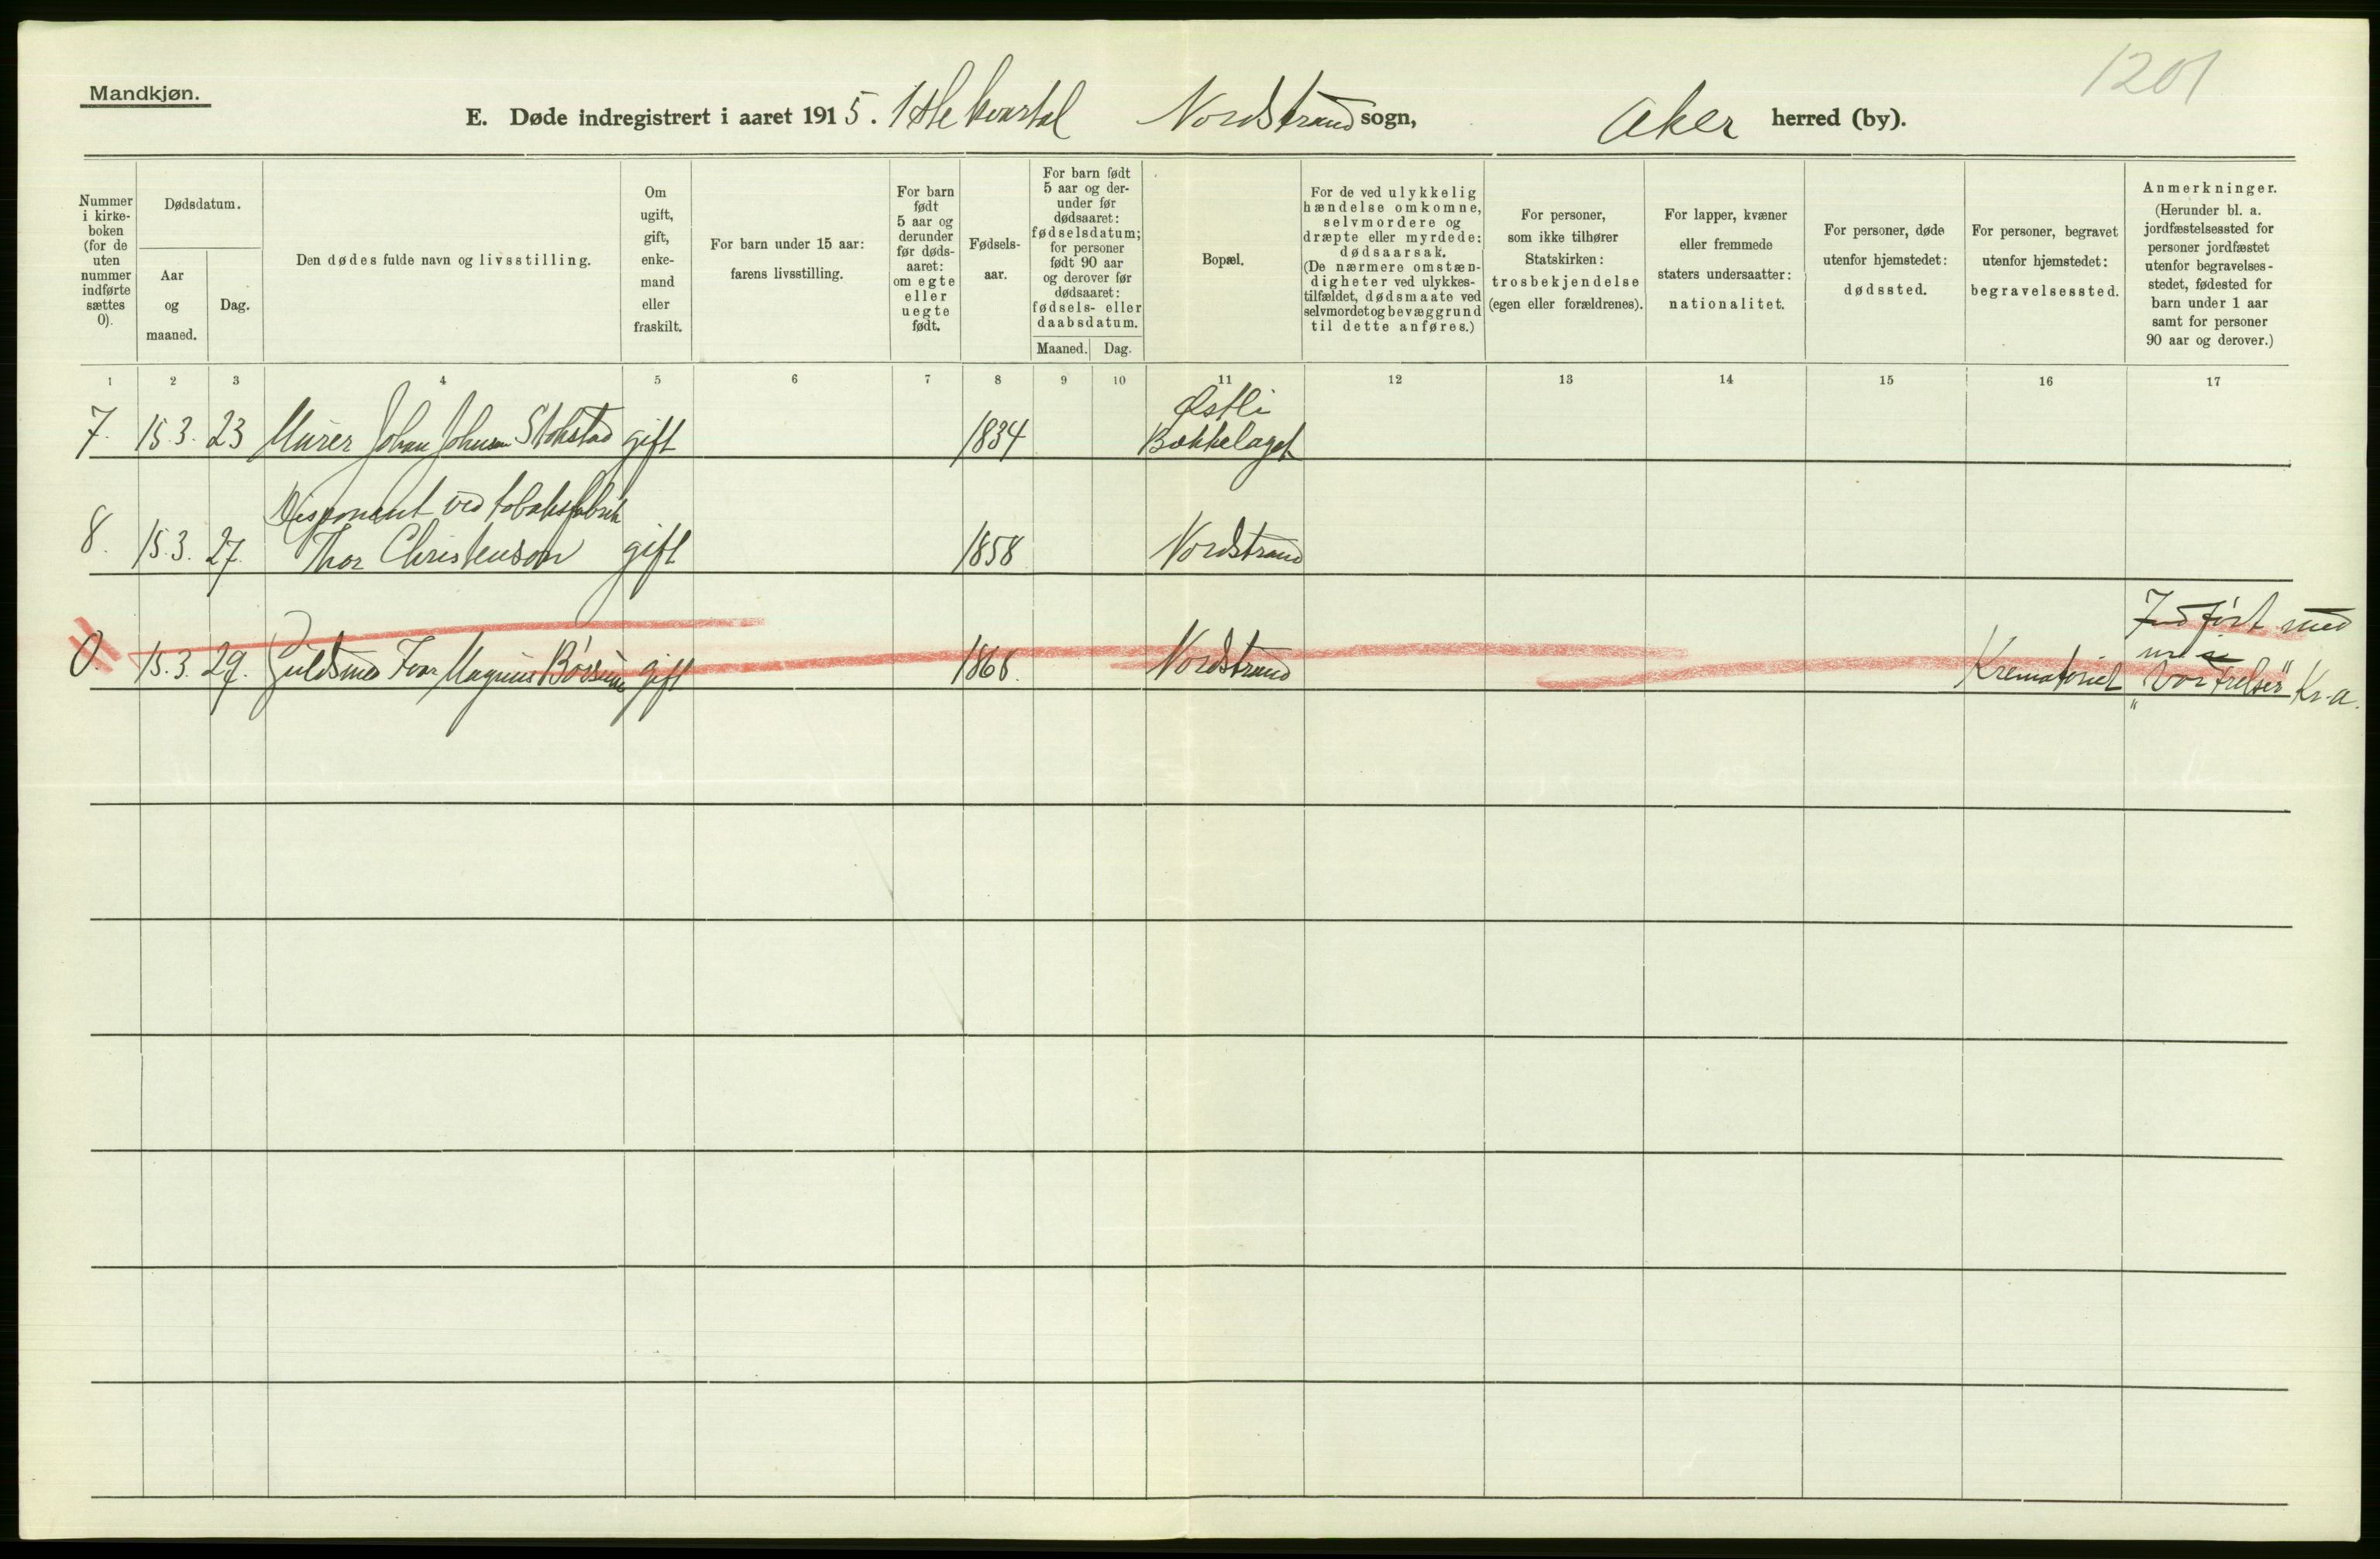 1201
Mandkjøn.
E. Døde indregistrert i aaret 1915. 1ste kvartal Nordstrand sogn, Aker herred (by).
Nummer
i kirke-
boken
(for de
uten
nummer
indførte
sættes
0).
Dødsdatum.
Aar
og
maaned.
Dag.
Den dødes fulde navn og livsstilling.
Om
ugift,
gift,
enke-
mand
eller
fraskilt.
For barn under 15 aar:
farens livsstilling.
For barn
født
5 aar og
derunder
før døds-
aaret:
om egte
eller
uegte
født.
Fødsels-
aar.
For barn født
5 aar og der-
under før
dødsaaret:
fødselsdatum;
for personer
født 90 aar
og derover før
dødsaaret:
fødsels- eller
daabsdatum.
Maaned. Dag.
Bopæl.
For de ved ulykkelig
hændelse omkomne,
selvmordere og
dræpte eller myrdede:
dødsaarsak.
(De nærmere omstæn-
digheter ved ulykkes-
tilfældet, dødsmaate ved
selvmordet og bevæggrund
til dette anføres.)
For personer,
som ikke tilhører
Statskirken:
trosbekjendelse
(egen eller forældrenes).
For lapper, kvæner
eller fremmede
staters undersaatter:
nationalitet.
For personer, døde
utenfor hjemstedet:
dødssted.
For personer, begravet
utenfor hjemstedet:
begravelsessted.
Anmerkninger.
(Herunder bl. a.
jordfæstelsessted for
personer jordfæstet
utenfor begravelses-
stedet, fødested for
barn under 1 aar
samt for personer
90 aar og derover.)
1 2 3 4 5 6 7 8 9 10 11 12 13 14 15 16 17
Østli
7. 15.3. 23 Murer Johan Johnsen Stokstad gift 1834 Bækkelaget
Disponent ved tobaksfabrik
8. 15.3. 27. Thor Christenson gift 1858 Nordstrand
Indført med
0. 15.3. 29. Guldsmed Ivar Magnus gift 1868. Nordstrand Krematoriet "Vor Frelser" Kr.a.